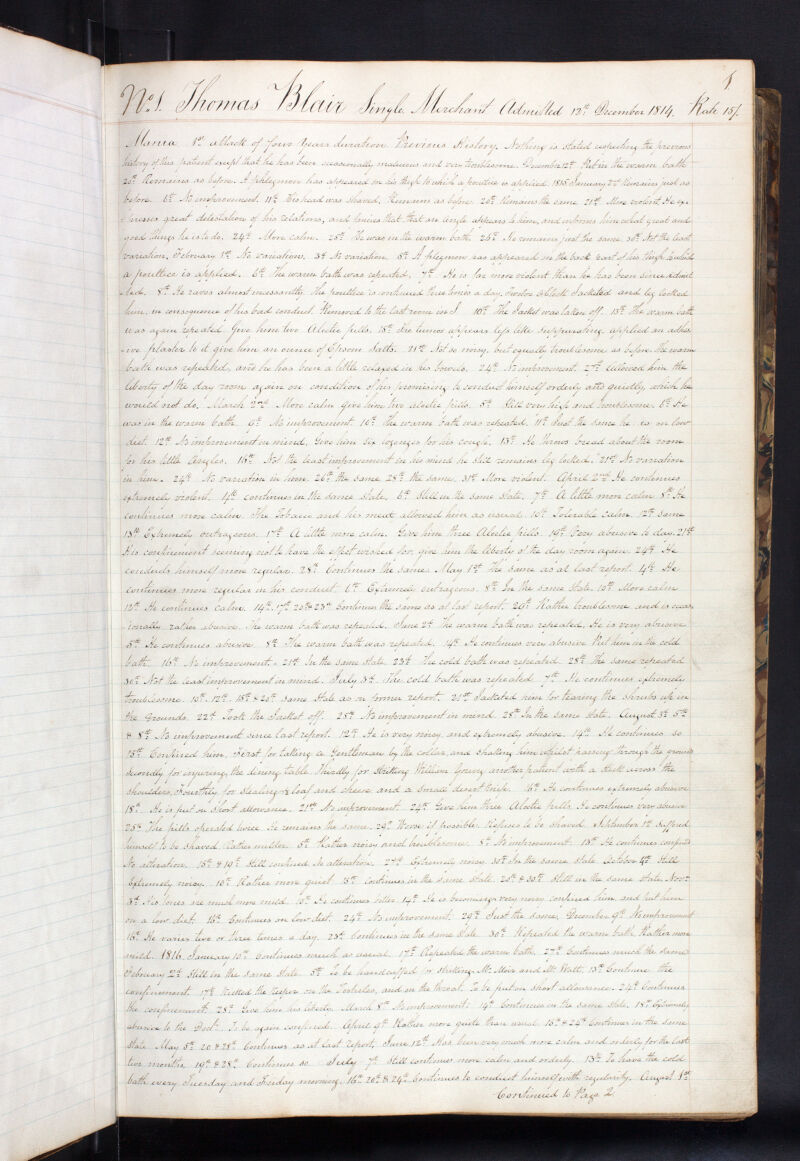 1
No. 1. Thomas Blair Single Merchant Admitted 12th December 1814. Rate 15/.
Mania 1st attack of four years duration Previous History. Nothing is stated respecting the previous
history of this patient except that he has been occasionally and very troublesome. December 12th Put in the warm bath
20th Remains as before. A phlegmon has appeared on his thigh to which a poultice is applied. 1815 January 2d Remains just as
before. 6th No improvement. 11th His head was shaved, Remains as before. 20th Remains the same. 21st More violent He ex-
presses great detestation of his relations, and fancies that that an Angle appears to him, and informs him what great and
good things he is to do. 24th More calm. 25th He was in the warm bath. 26th He remains just the same. 30th Not the least
variation, February 1st No variation. 3d No variation. 5th A phlegmon has appeared on the back part of his thigh to which
a poultice is applied. 6th The warm bath was repeated. 7th He is far more violent than he has been since admit
ted. 8th He raves almost incessantly. The poultice is renewed three times a day. Twelve o'Clock Jacketed and leg locked
him, in consequence of his bad conduct Removed to the last room in I. 10th The Jacket was taken off. 13th The warm bath
was again repeated. Give him two Aloetic pills. 18th His tumor appears less like suppurating applied an adhes
ive plaster to it give him an ounce of Epsom Salts. 21st Not so noisy, but equally troublesome as before. The warm
bath was repeated, and he has been a little relaxed in his bowels. 24th No improvement. 27th Allowed him the
liberty of the day room again on condition of his promising to conduct himself orderly and quietly, which he
would not do. March 2nd More calm give him two aloetic pills. 5th Still very high and troublesome. 6th He
was in the warm bath. 9th No improvement 10th The warm bath was repeated. 11th Just the same he is on low
diet. 12th No improvement in mind. Give him six lozenges for his cough. 13th He throws bread about the room
for his little Angles. 16th Not the least improvement in his mind he still remains leg locked. 21st No variation
in him. 24th No variation in him. 26th the same. 28th the same. 31st More violent. April 2nd He continues
extremely violent. 4th continues in the same state. 6th Still in the same state. 7th A little more calm 8th He
continues more calm. The Tobacco and his meat allowed him as usual. 10th Tolerable calm. 12th same
13th Extremely outrageous. 17th A little more calm. Give him three Aloetic pills. 19th Very abusive to day. 21st
His confinement seeming not to have the effect wished for, give him the liberty of the day room again. 24th He
conducts himself more regular. 28th Continues the same. May 1st The same as at last report. 4th He
continues more regular in his conduct. 6th Extremely outrageous. 8th In the same state. 10th More calm
12th He continues calm. 14th. 17th 20th & 23d Continues the same as at last report. 26th Rather troublesome and is occas
ionally rather abusive. The warm bath was repeated. June 2d The warm bath was repeated. He is very abusive
5th He continues abusive. 8th The warm bath was repeated. 14th He continues very abusive Put him in the cold
bath. 16th No improvement. 21st In the same state. 23d The cold bath was repeated. 28th The same repeated
30th Not the least improvement in mind. July 3d The cold bath was repeated. 7th He continues extremely
troublesome. 10th. 12th. 18th & 20th Same state as in former report. 21st Jacketed him for tearing the shrubs up in
the Grounds. 22d Took the Jacket off. 25th No improvement in mind. 28th In the same state. August 3d 5th
& 8th No improvement since last report. 12th He is very noisy and extremely abusive. 14th He continues so
15th Confined him, First for taking a Gentleman by the collar, and shaking him whilst passing through the grounds
secondly for injuring the dining table Thirdly for Striking William Young another patient with a stick across the
shoulders, Fourthly for Stealing a loaf and cheese and a small desert knife. 16th He continues extremely abusive
18th He is put on Short allowance. 21st No improvement 24th Give him three Aloetic pills. He continues very abusive
25th The pills operated twice. He remains the same. 29th Worse if possible. Refuses to be shaved. September 1st Suffered
himself to be Shaved. Rather milder. 5th Rather noisy and troublesome. 8th No improvement. 13th He continues confined
No alteration. 16th & 19th Still confined. No alteration. 27th Extremely noisy. 30th In the same state. October 4th Still
Extremely noisy. 10th Rather more quiet. 15th Continues in the same state. 20th & 30th Still in the same state. Novr
3d His tones are much more mild. 10th He continues better. 14th He is becoming very noisy confined him and put him
on a low diet. 16th Continues on low diet. 24th No improvement. 29th Just the same. December 9th No improvement
16th He varies two or three times a day. 23d Continues in the same state. 30th Repeated the warm bath Rather more
mild. 1816. January 10th Continues much as usual. 17th Repeated the warm bath. 27th Continues much the same
February 2d Still in the same state. 5th To be handcuffed for striking Mr. Moir and Mr. Watt. 13th Continue the
confinement. 17th Kicked the keeper on the Testicles, and in the throat. To be put on short allowance. 24th Continues
the confinement. 28th Give him his liberty. March 8th No improvement. 14th Continues in the same state. 18th Extremely
abusive to the Doctr. To be again confined. April 9th Rather more quiet than usual. 16th & 24th Continues in the same
state May 5th 20 & 28th Continues as at last report. June 12th Has been very much more calm and orderly for the last
two months. 19th & 28th Continues so. July 7th Still continues more calm and orderly. 13th To have the cold
bath every Tuesday and Friday morning. 16th 20th & 24th Continues to conduct himself with regularity. August 1st
Continued to Page 2.